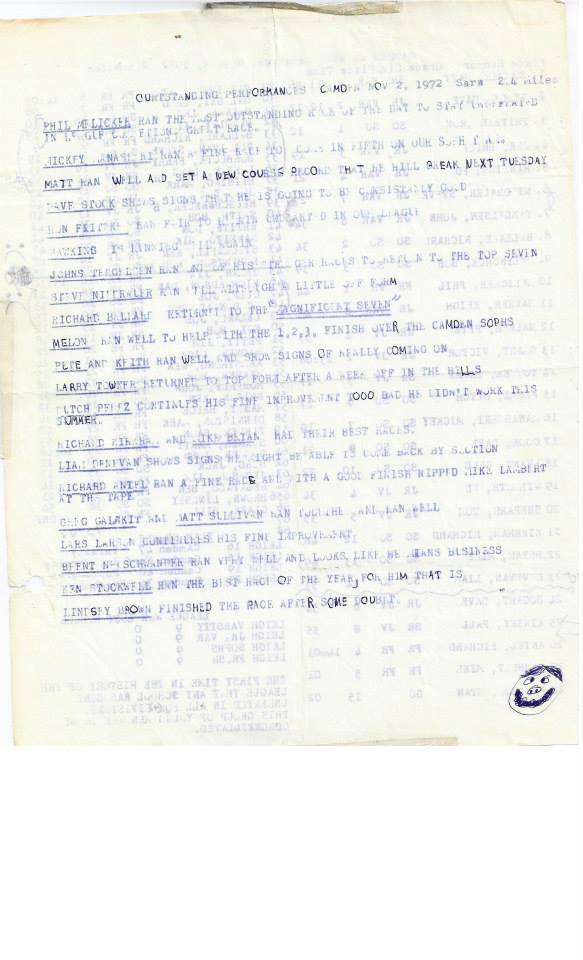 OURTSTANDING PERFORMANCES CAMDEN NOV 2, 1972 Sara 2.4 miles
PHIL MFLICKER RAN THE MOST OUTSTANDING RACE OF THE DAY TO STAY UNDEFEATED
IN LEAGUE GREAT RACE.
MICKEY RAN A FINE RACE TO IN FIFTH ON OUR SOPH
MATT RAN WELL AND SET A NEW COURSE RECORD THAT HE WILL BREAK NEXT TUESDAY
DAVE STOCK SHOWS SIGNS THAT HE IS GOING TO BE CONSISTANLY GOOD
RON RAN IN OUR LEAGUE
HAWKINS IS RUNNING WELL AGAIN
JOHNS RAN ONE OF HIS RACES TO RETURN TO THE TOP SEVEN
STEVE RAN WELL ALTHOUGH A LITTLE OFF FORM
RICHARD BALLARD RETURNED TO THE "MAGNIFICENT SEVEN"
MELON RAN WELL TO HELP WITH THE 1,2,3, FINISH OVER THE CAMDEN SOPHS
PETE AND KEITH RAN WELL AND SHOW SIGNS OF REALLY COMING ON
LARRY TOWNER RETURNED TO TOP FORM AFTER A WEEK OFF IN THE HILLS
BUTCH PEREZ CONTINUES HIS FINE IMPROVEMENT TOOO BAD HE DIDN'T WORK THIS
SUMMER.
RICHARD KIRKHAM AND MIKE BRYAN HAD THEIR BEST RACES.
LIAM DENEVAN SHOWS SIGNS HE MIGHT BE ABLE TO COME BACK BY SECTION
RICHARD ANIEL RAN A FINE RACE AND WITH A GOOD FINISH NIPPED MIKE LAMBERT
AT THE TAPE
GREG AND MATT SULLIVAN RAN TOGETHER AND RAN WELL
LARS LARSON CONTINUES HIS FINE IMPROVEMENT
BRENT RAN VERY WELL AND LOOKS LIKE HE MEANS BUSINESS
KEN STOCKWELL RAN THE BEST RACE OF THE YEAR, FOR HIM THAT IS
LINDSEY BROWN FINISHED THE RACE AFTER SOME DOUBT.